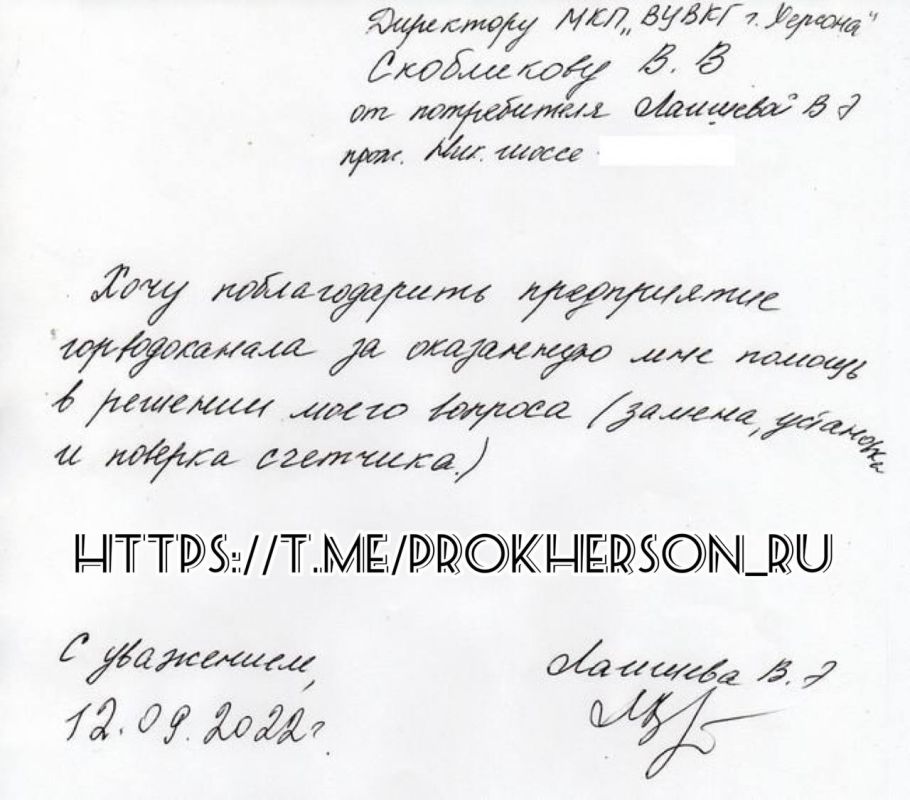 Директору МКП „ВУВКГ г. Херсона"
Скобликову В. В
от потребителя Лаишевой В Э
прож. Ник. шоссе
Хочу поблагодарить предприятие
горводоканала за оказанную мне помощь
в решении моего вопроса (замена, установка
и поверка счетчика.)
HTTPS://T.ME/PROKHERSON_RU
С уважением,
Лаишева В. Э
12.09.2022г